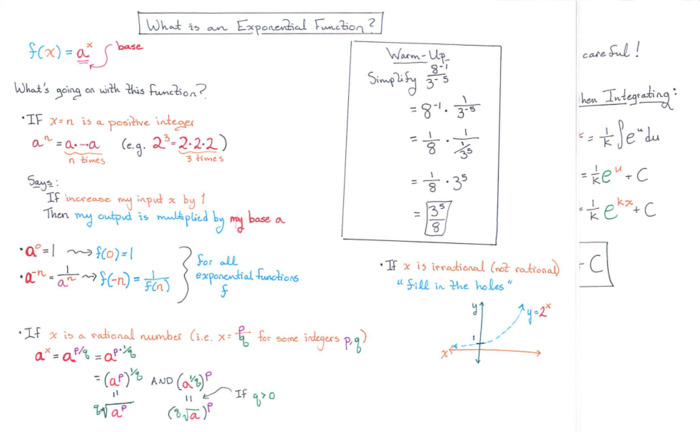 What is an Exponential Function?
f(x) = a^x base
What's going on with this function?
• IF x=n is a positive integer
a^n = a·⋯·a (e.g. 2^3 = 2·2·2)
n times 3 times
Says:
If increase my input x by 1
Then my output is multiplied by my base a
• a^0 = 1 ⇝ f(0) = 1
• a^-n = 1/a^n ⇝ f(-n) = 1/f(n)
for all
exponential functions
f
• If x is a rational number (i.e. x = p/q for some integers p,q)
a^x = a^p/q = a^p·1/q
= (a^p)^1/q AND (a^1/q)^p
= q√a^p = (q√a)^p If q>0
Warm-Up
Simplify 8^-1/3^-5
= 8^-1 · 1/3^-5
= 1/8 · 1/(1/3^5)
= 1/8 · 3^5
= 3^5/8
• If x is irrational (not rational)
"fill in the holes"
y
y=2^x
1
x
careful!
hen Integrating:
= 1/k ∫e^u du
= 1/k e^u + C
= 1/k e^kx + C
- C